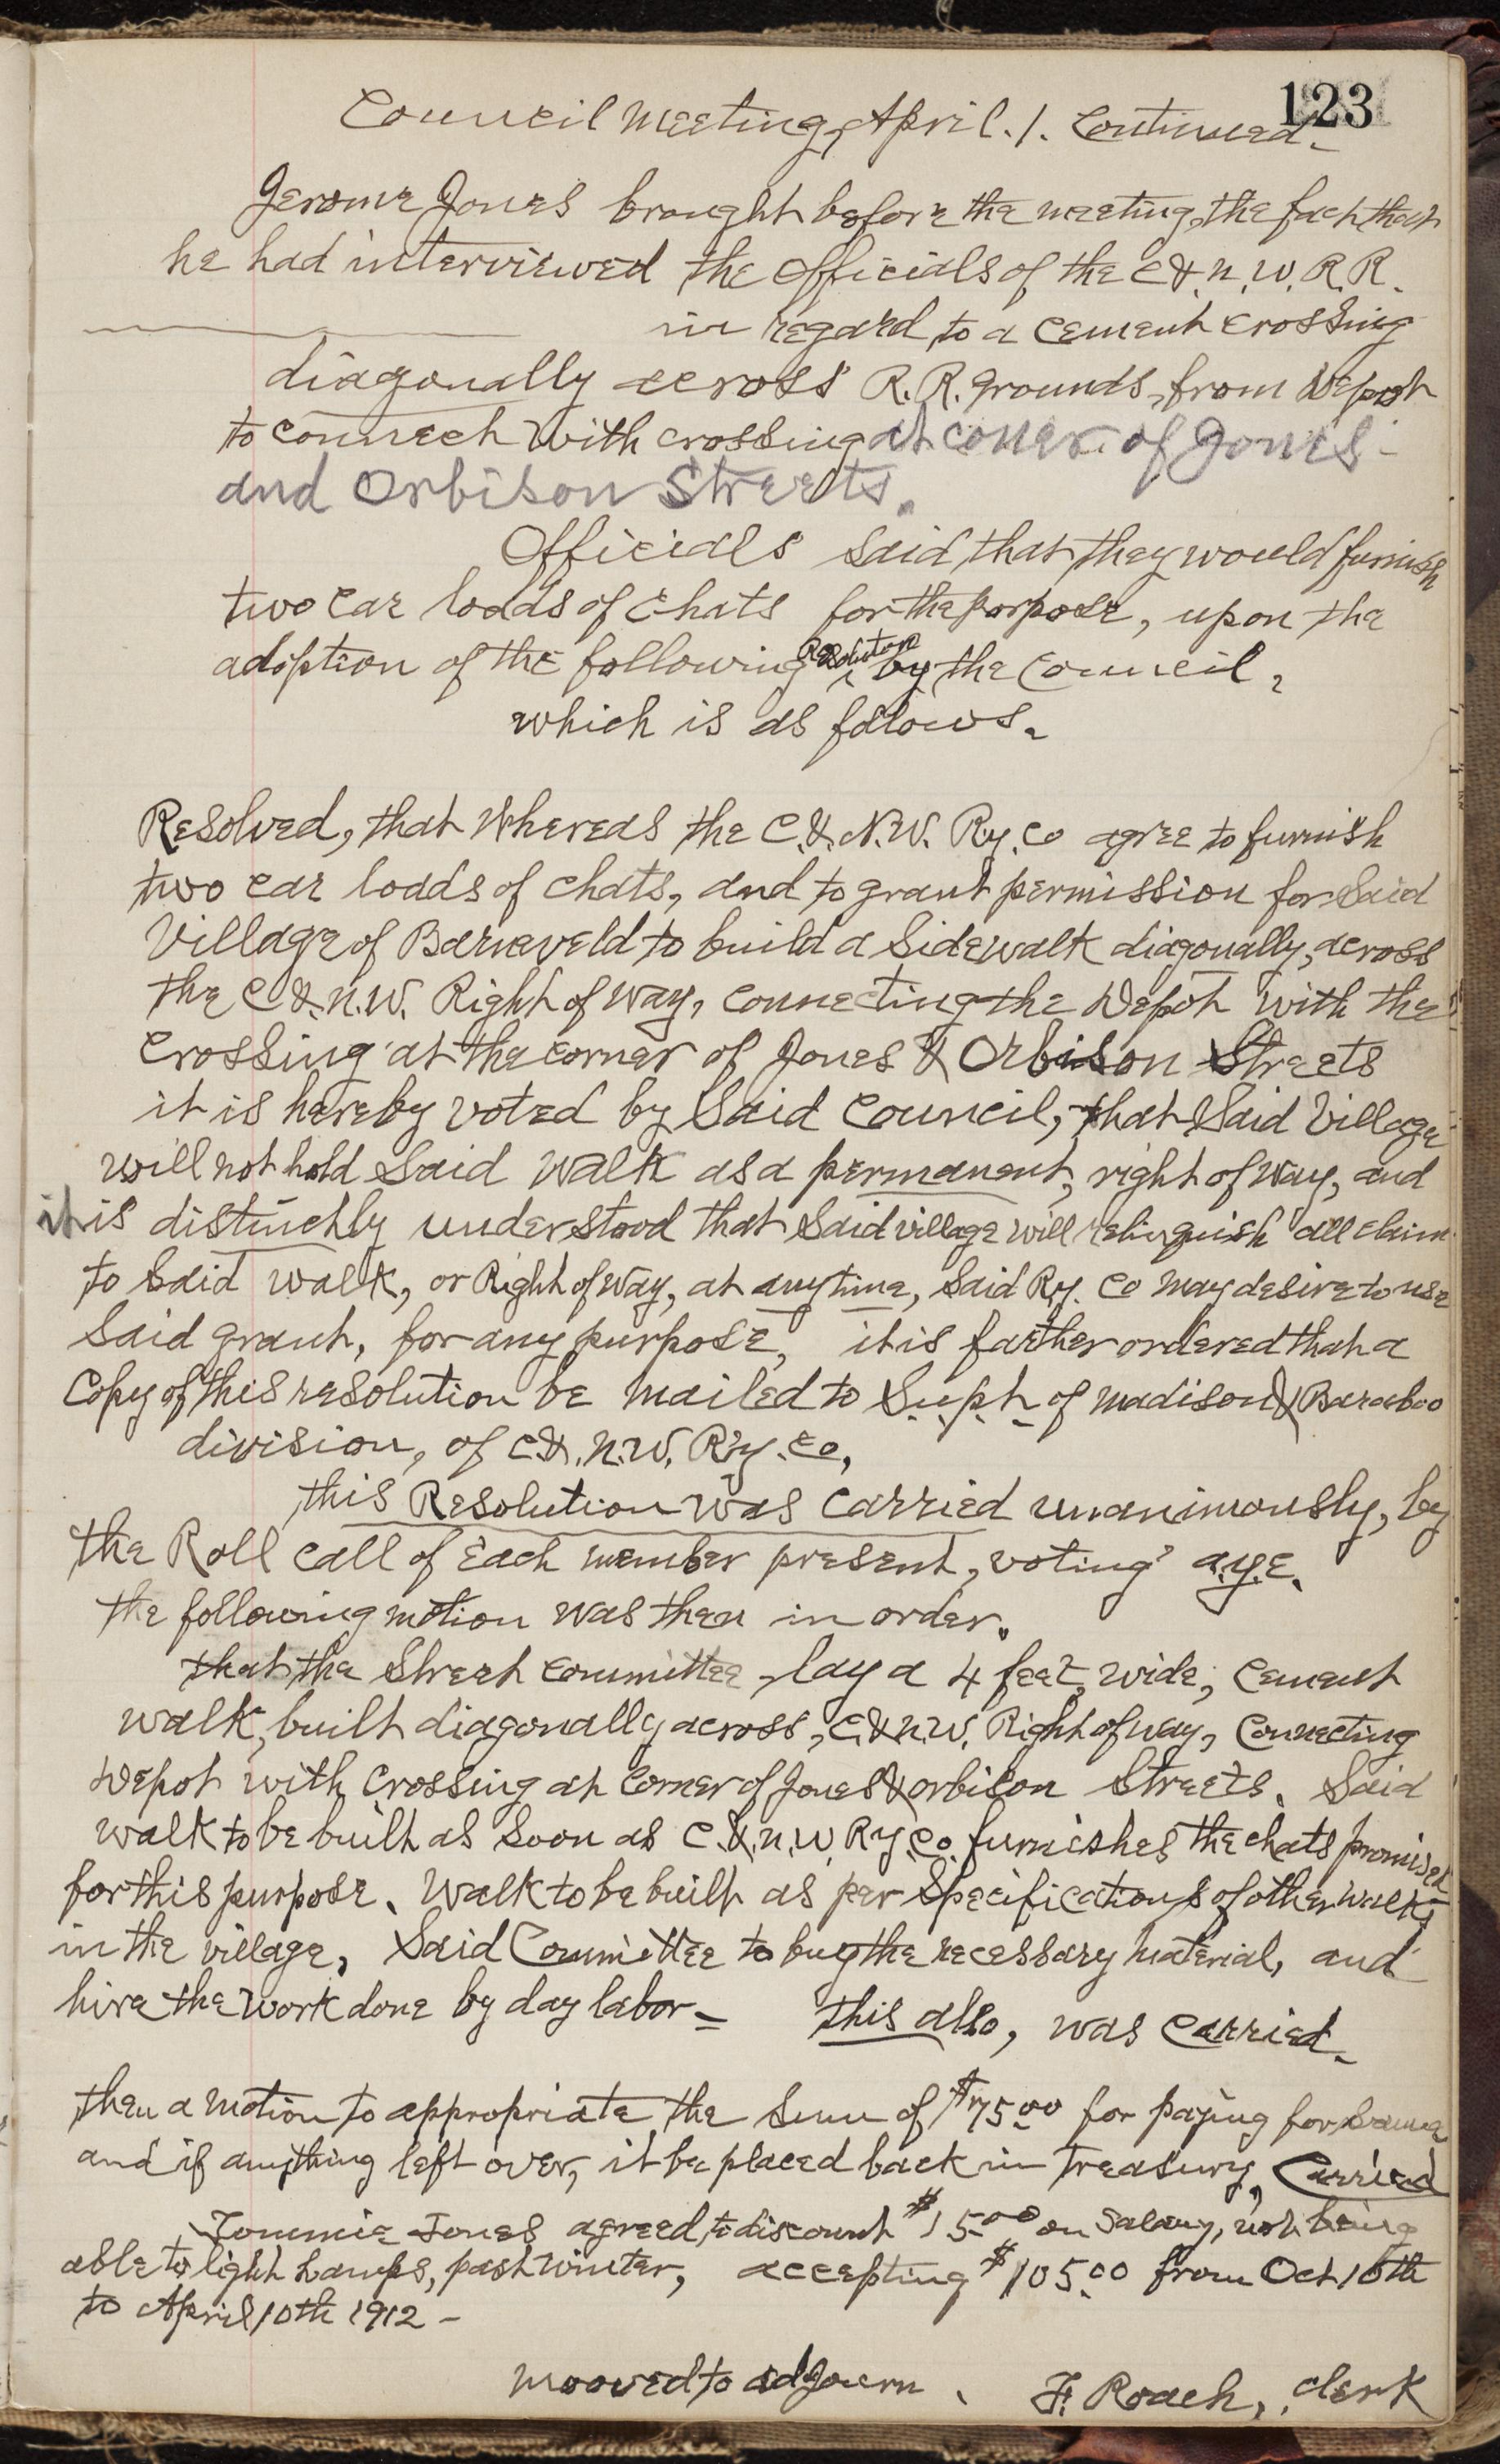 123
Council Meeting, April. 1. Continued.
Jerome Jones brought before the meeting, the fact that
he had interviewed the Officials of the C&.N.W.R.R.
in regard to a Cement Crossing
diagonally across R.R. grounds, from Depot
to connect with crossing at coner of Jones
and Orbison Streets.
Officials said that they would furnish
two car loads of chats for the porpose, upon the
adoption of the following Resolution by the Council,
which is as folows.
Resolved, that Whereas the C.&.N.W. Ry. Co agree to furnish
two car loads of chats, and to grant permission for Said
Village of Barneveld to build a Sidewalk diagonally, across
the C&.N.W. Right of Way, connecting the Depot with the
Crossing at the corner of Jones & Orbison Streets
it is hereby voted by Said Council, that Said Village
will not hold Said Walk as a permanent, right of Way, and
it is distinctly understood that Said village will relinquish all claim
to Said walk, or Right of Way, at anytime, Said Ry. Co may desire to use
Said grant, for any purpose, it is farther ordered that a
Copy of this resolution be mailed to Supt. of Madison & Baraboo
division, of C&.N.W. Ry. Co,
this Resolution was carried unanimously, by
the Roll call of Each member present, voting aye.
the following motion was then in order.
that the Street Committee lay a 4 feet wide, Cement
walk, built diagonally across, C&N.W. Right of way, Connecting
Depot with Crossing at Corner of Jones & Orbison Streets. Said
walk to be built as Soon as C.&.N.W. Ry. Co. furnishes the chats promised
for this purpose. Walk to be built as per Specifications of other walks
in the village, Said Committee to buy the necessary Material, and
hire the work done by day labor = this also, was Carried.
then a Motion to appropriate the Sum of $75.00 for paying for same
and if anything left over, it be placed back in Treasury, Carried
Tommie Jones agreed to discount $15.00 on Salary, not being
able to light Lamps, past Winter, accepting $105.00 from Oct 10th
to April 10th 1912 -
Mooved to adjourn. F. Roach, Clerk